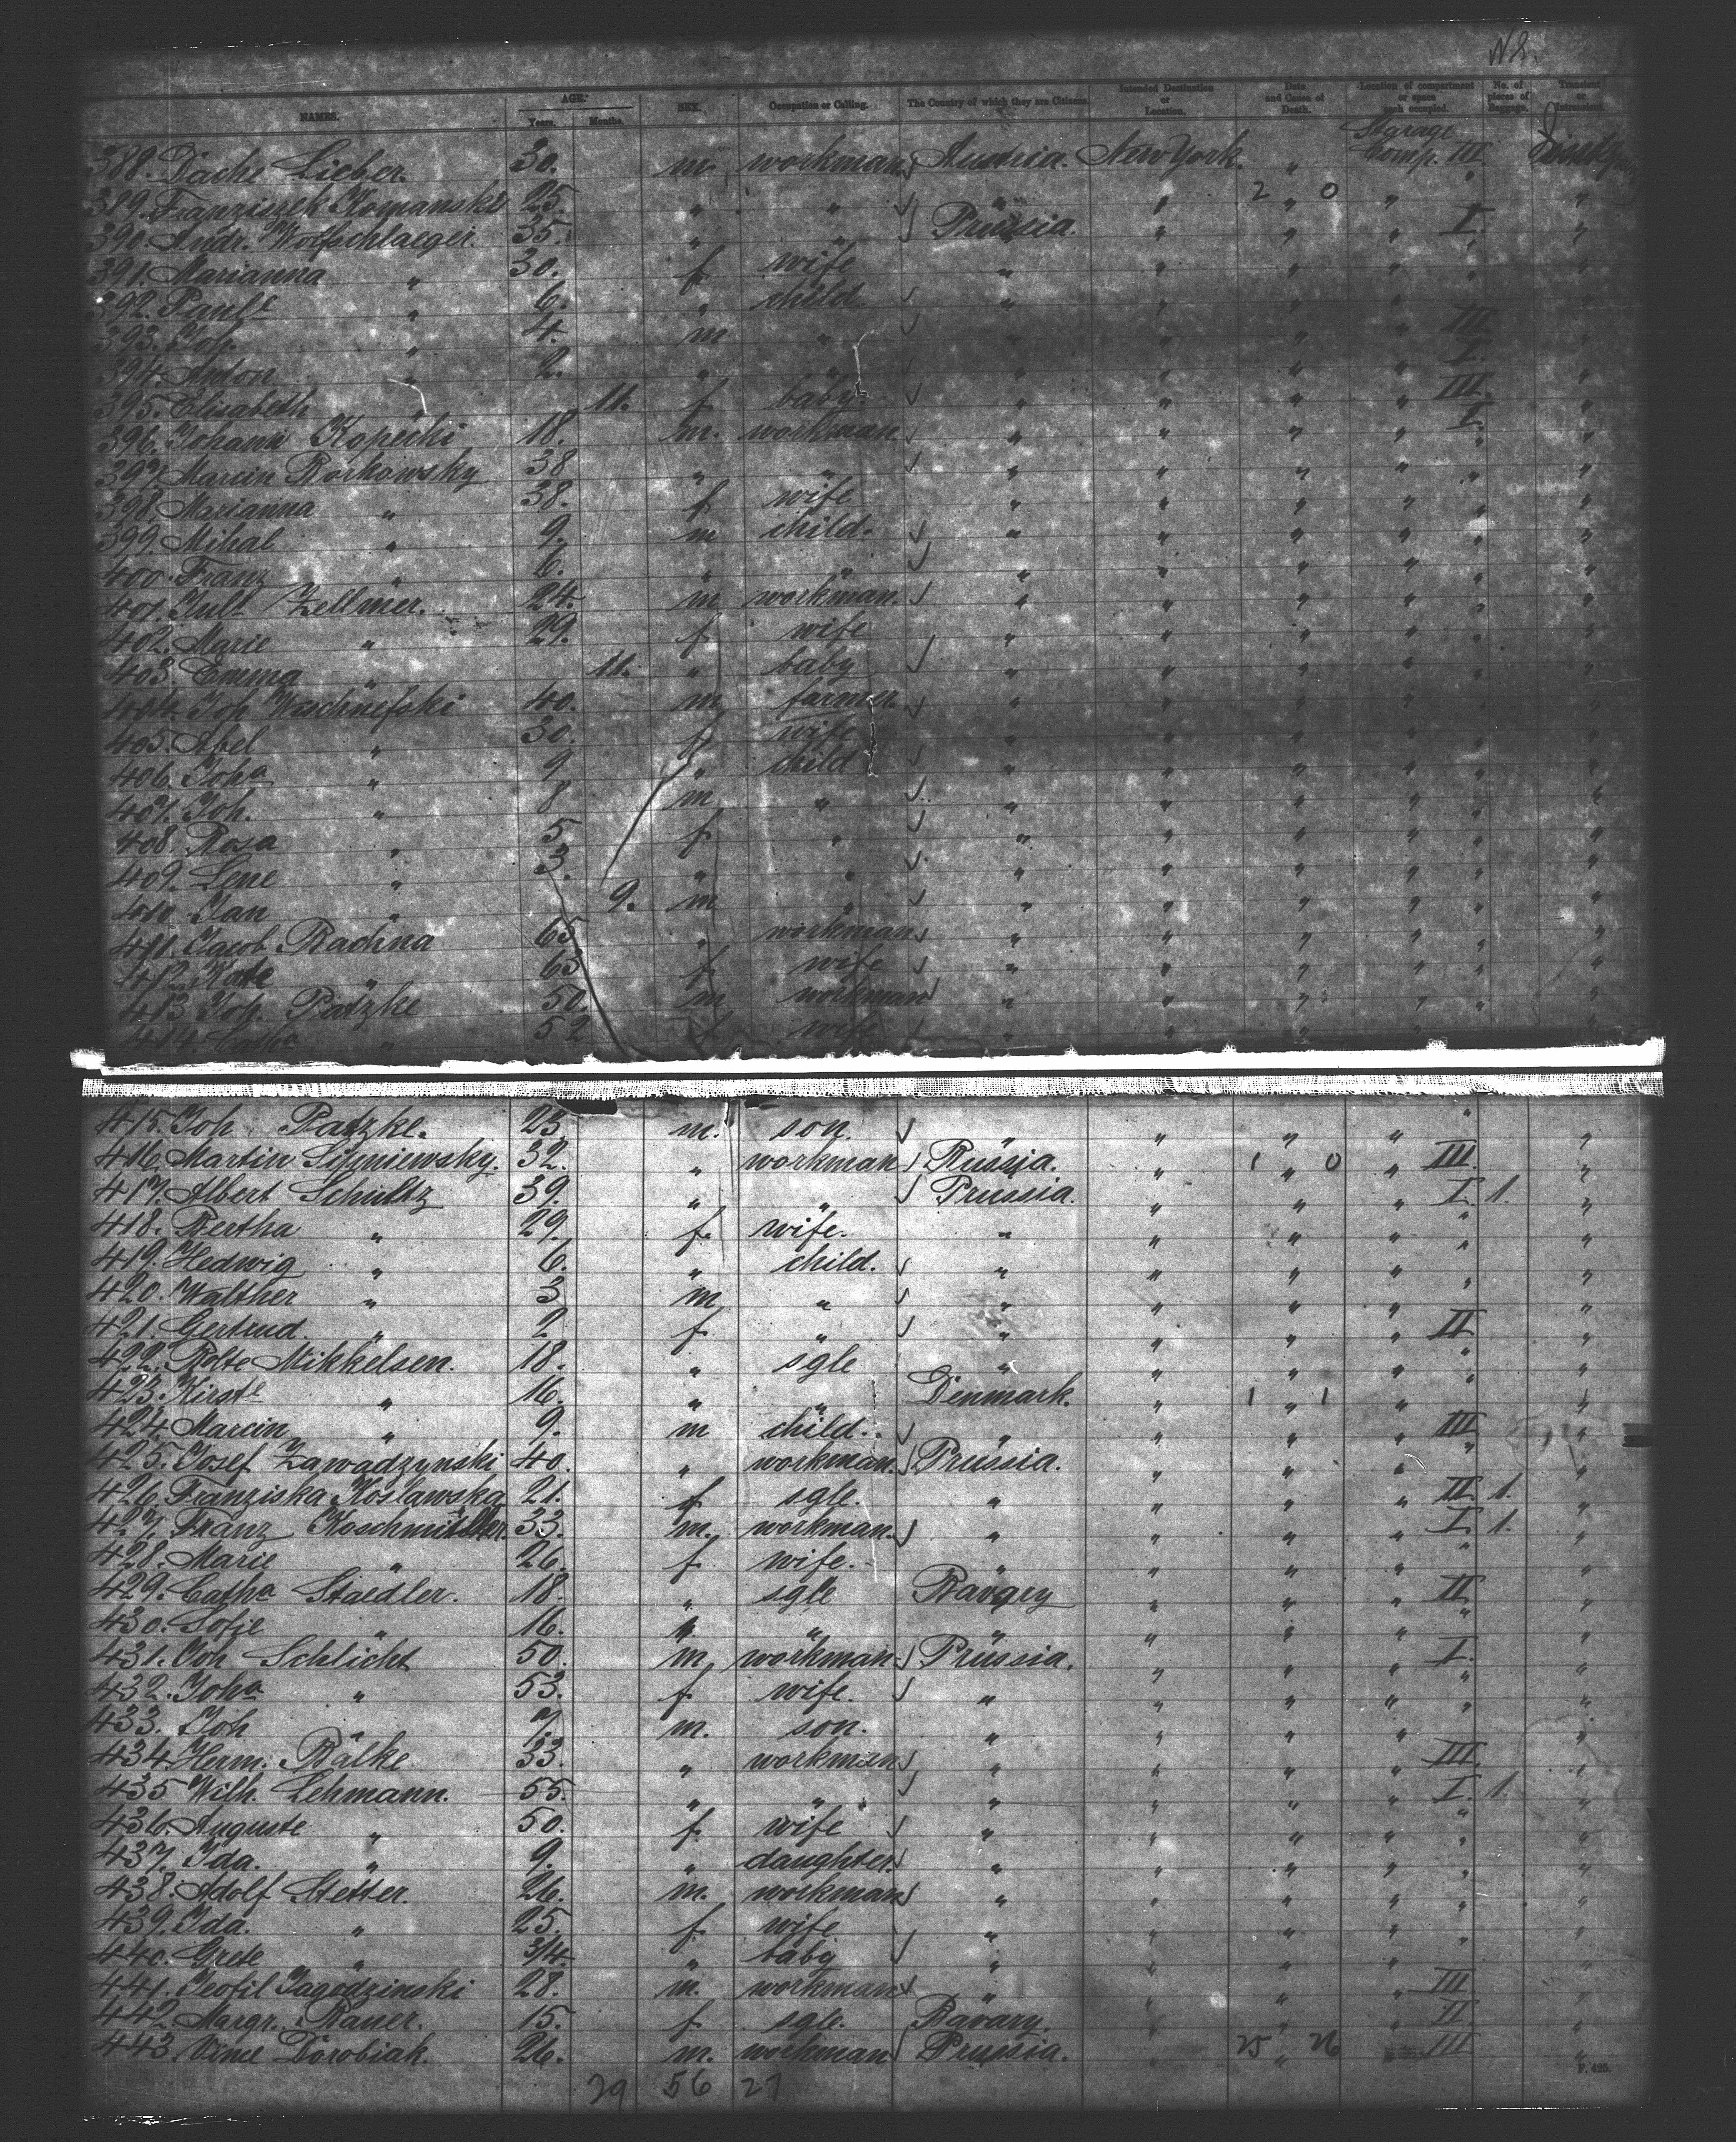 N 8.
NAMES. AGE. Years. Months. SEX. Occupation or Calling. The Country of which they are Citizens. Intended Destination or Location. Date and Cause of Death. Location of compartment or space each occupied. No. of pieces of Baggage. Transient or
388. Lieber. 30. m workman Austria. New York " Starage Comp. III
389. Franziszek Komanski 25. " " " " 2 " 0 " " "
390. Andr. Wolfschlaeger. 35. " " Prussia. " " " I. "
391. Marianna " 30. f wife " " " " " "
392. Paul " 6. " child " " " " " "
393. Joh. " 4. m " " " " " III "
394. Anton " 2. " " " " " " I. "
395. Elisabeth " 11. f baby " " " " III. "
396. Johann Kopecki 18. m. workman " " " " I. "
397. Marcin Borkowsky 38 " " " " " " " "
398. Marianna " 38. f wife " " " " " "
399. Mihal " 9. m child. " " " " " "
400. Franz " 6. " " " " " " " "
401. Jul. Zellmer. 24. m workman. " " " " " "
402. Marie " 29. f wife " " " " " "
403. Emma " 11. " baby " " " " " "
404. Joh. 40. m farmer " " " " " "
405. Abel " 30. f wife " " " " " "
406. Joha " 9 " child " " " " " "
407. Joh. " 8 m " " " " " " "
408. Rosa " 5 f " " " " " " "
409. Lene " 3. " " " " " " " "
410. Jan " 9. m " " " " " " "
411. Jacob Rachna 65 " workman " " " " " "
412. Kate " 63 f wife " " " " " "
413 Joh. Patzke 50. m workman " " " " " "
414 Catha " 52 f wife
415. Joh. Patzke. 25 m. son. " " " " " "
416. Martin 32. " workman Russia. " 1 " 0 " III. "
417. Albert Schultz 39. " " Prussia. " " " I. 1. "
418. Bertha " 29. f. wife. " " " " " "
419. Hedwig " 6. " child. " " " " " "
420. Walther " 3 m " " " " " " "
421. Gertrud. " 2 f " " " " " II "
422. Mikkelsen. 18. " sgle " " " " " "
423. Kirste " 16. " " Denmark. " 1 " 1 " " "
424. Marcin " 9. m child. " " " " III "
425. Josef Zawadzynski 40. " workman. Prussia. " " " " "
426. Franziska Koslawska 21. f sgle. " " " " II. 1. "
427. Franz 33. m. workman. " " " " I. 1. "
428. Marie " 26. f wife. " " " " " "
429. Catha Staedler. 18. " sgle Bavary " " " II "
430. Sofie " 16. " " " " " " " "
431. Joh Schlicht 50. m. workman Prussia. " " " I. "
432. Joha " 53. f. wife. " " " " " "
433. Joh " 7. m. son. " " " " " "
434. Herm. Bälke 33. " workman " " " " III. "
435 Wilh. Lehmann. 55. " " " " " " I. 1. "
436. Auguste " 50. f wife " " " " " "
437. Ida. " 9. " daughter " " " " " "
438. Adolf Stetter. 26. m. workman " " " " " "
439. Ida. " 25. f wife " " " " " "
440. Grete " 3/4. " baby " " " " " "
441. Teofil Jagodzinski 28. m. workman " " " " III "
442. Margr. Bauer. 15. f sgle. Bavary. " " " II "
443. Dorobiak. 26. m. workman Prussia. " 25 " 26 III "
29 56 27